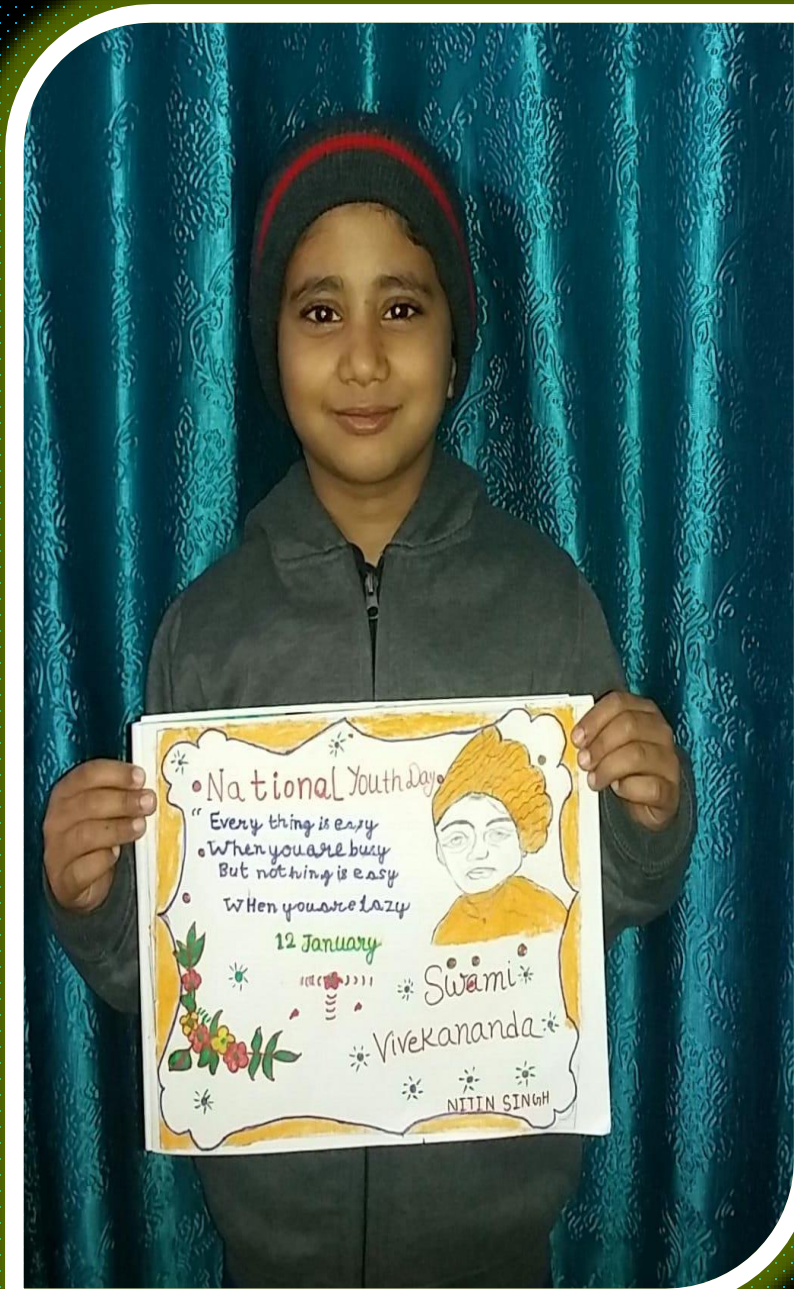 National Youth Day
" Every thing is easy
When you are busy
But nothing is easy
WHen you are lazy
12 January
Swami
Vivekananda
NITIN SINGH